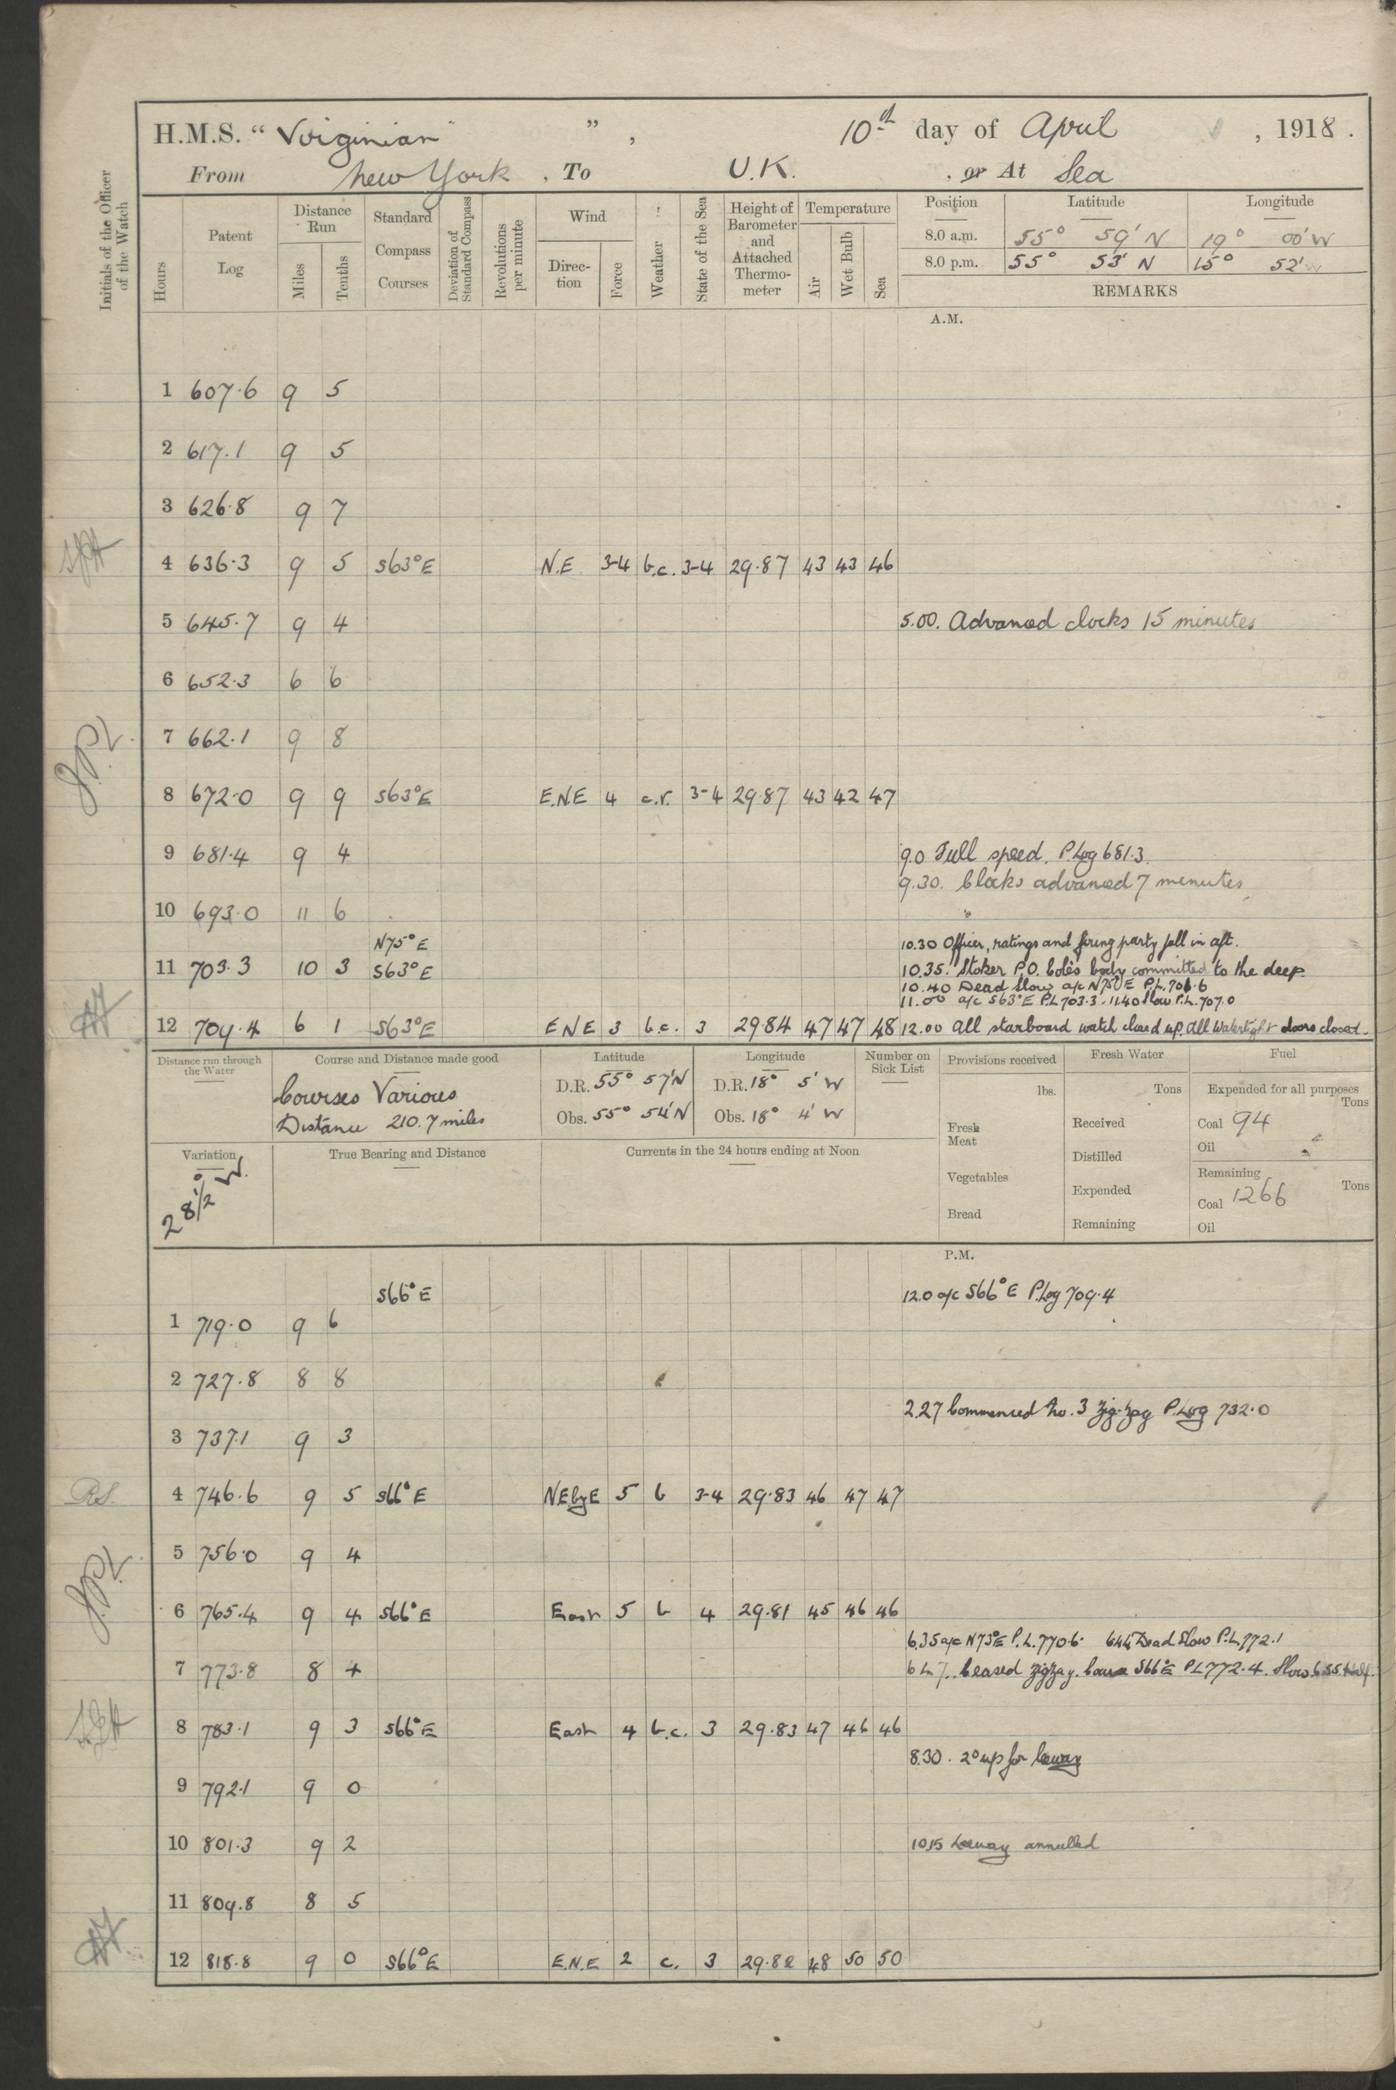 H.M.S. " Virginian " , 10th day of April , 1918 .
From New York . To U.K. . or At Sea
Initials of the Officer of the Watch
Hours Patent Log Distance Run Miles Tenths Standard Compass Courses Deviation of Standard Compass Revolutions per minute Wind Direc-tion Force Weather State of the Sea Height of Barometer and Attached Thermo-meter Temperature Air Wet Bulb Sea
Position Latitude Longitude
8.0 a.m. 55° 59' N 19° 00' W
8.0 p.m. 55° 53' N 15° 52' W
REMARKS
A.M.
1 607.6 9 5
2 617.1 9 5
3 626.8 9 7
4 636.3 9 5 S63°E N.E 3-4 b.c. 3-4 29.87 43 43 46
5 645.7 9 4 5.00. Advanced clocks 15 minutes
6 652.3 6 6
7 662.1 9 8
J.P.L.
8 672.0 9 9 S63°E E.N.E 4 c.r. 3-4 29.87 43 42 47
9 681.4 9 4 9.0 Full speed. P.Log 681.3.
9.30. Clocks advanced 7 minutes
10 693.0 11 6
N75°E 10.30 Officer, ratings and firing party fell in aft.
11 703.3 10 3 S63°E 10.35. Stoker P.O. Cole's body committed to the deep
10.40 Dead Slow a/c N75°E P.L. 701.6
11.00 a/c S63°E P.L 703.3. 11.40 Slow P.L. 707.0
12 709.4 6 1 S63°E E N E 3 b.c. 3 29.84 47 47 48 12.00 All starboard watch closed up. All Watertight doors closed.
Distance run through the Water Course and Distance made good Latitude Longitude Number on Sick List Provisions received Fresh Water Fuel
Courses Various
Distance 210.7 miles
D.R. 55° 57' N D.R. 18° 5' W
Obs. 55° 54' N Obs. 18° 4' W
lbs. Tons Expended for all purposes Tons
Fresh Meat Received Coal 94
Distilled Oil
Variation True Bearing and Distance Currents in the 24 hours ending at Noon
28 1/2° W.
Vegetables Expended Remaining Tons
Coal 1266
Bread Remaining Oil
P.M.
S66°E 12.0 a/c S66°E P.Log 709.4
1 719.0 9 6
2 727.8 8 8
2.27 Commenced No. 3 Zig-zag P.Log 732.0
3 737.1 9 3
R.S.
4 746.6 9 5 S66°E NEbyE 5 b 3-4 29.83 46 47 47
5 756.0 9 4
J.P.L.
6 765.4 9 4 S66°E East 5 b 4 29.81 45 46 46
6.35 a/c N73°E P.L. 770.6. 6.44 Dead Slow P.L. 772.1
7 773.8 8 4 6.47. Ceased zigzag. Course S66°E P.L 772.4. Slow. 6.55 Half.
8 783.1 9 3 S66°E East 4 b.c. 3 29.83 47 46 46
8.30. 2° up for leeway
9 792.1 9 0
10 801.3 9 2 10.15 Leeway annulled
11 809.8 8 5
12 818.8 9 0 S66°E E.N.E 2 c. 3 29.82 48 50 50